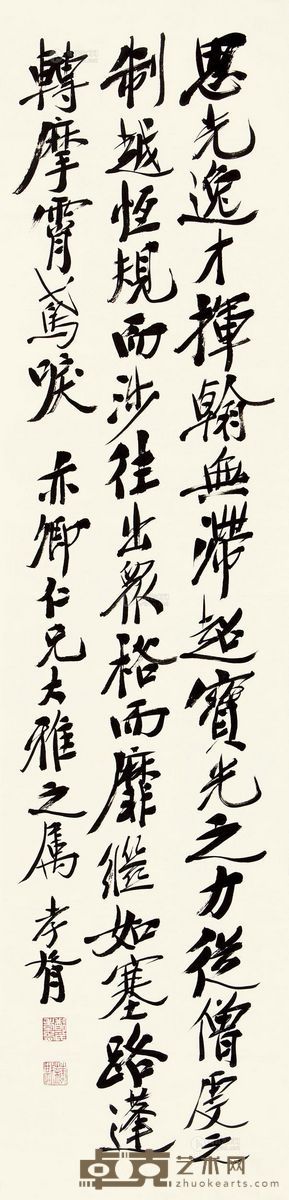 思光逸才揮翰無滯超寶光之力從僧虔之
制越恆規而涉往出眾格而靡繼如塞路蓬
轉摩霄鳶唳 赤卿仁兄大雅之屬 孝胥
卓克艺术网
www.zhuokearts.com